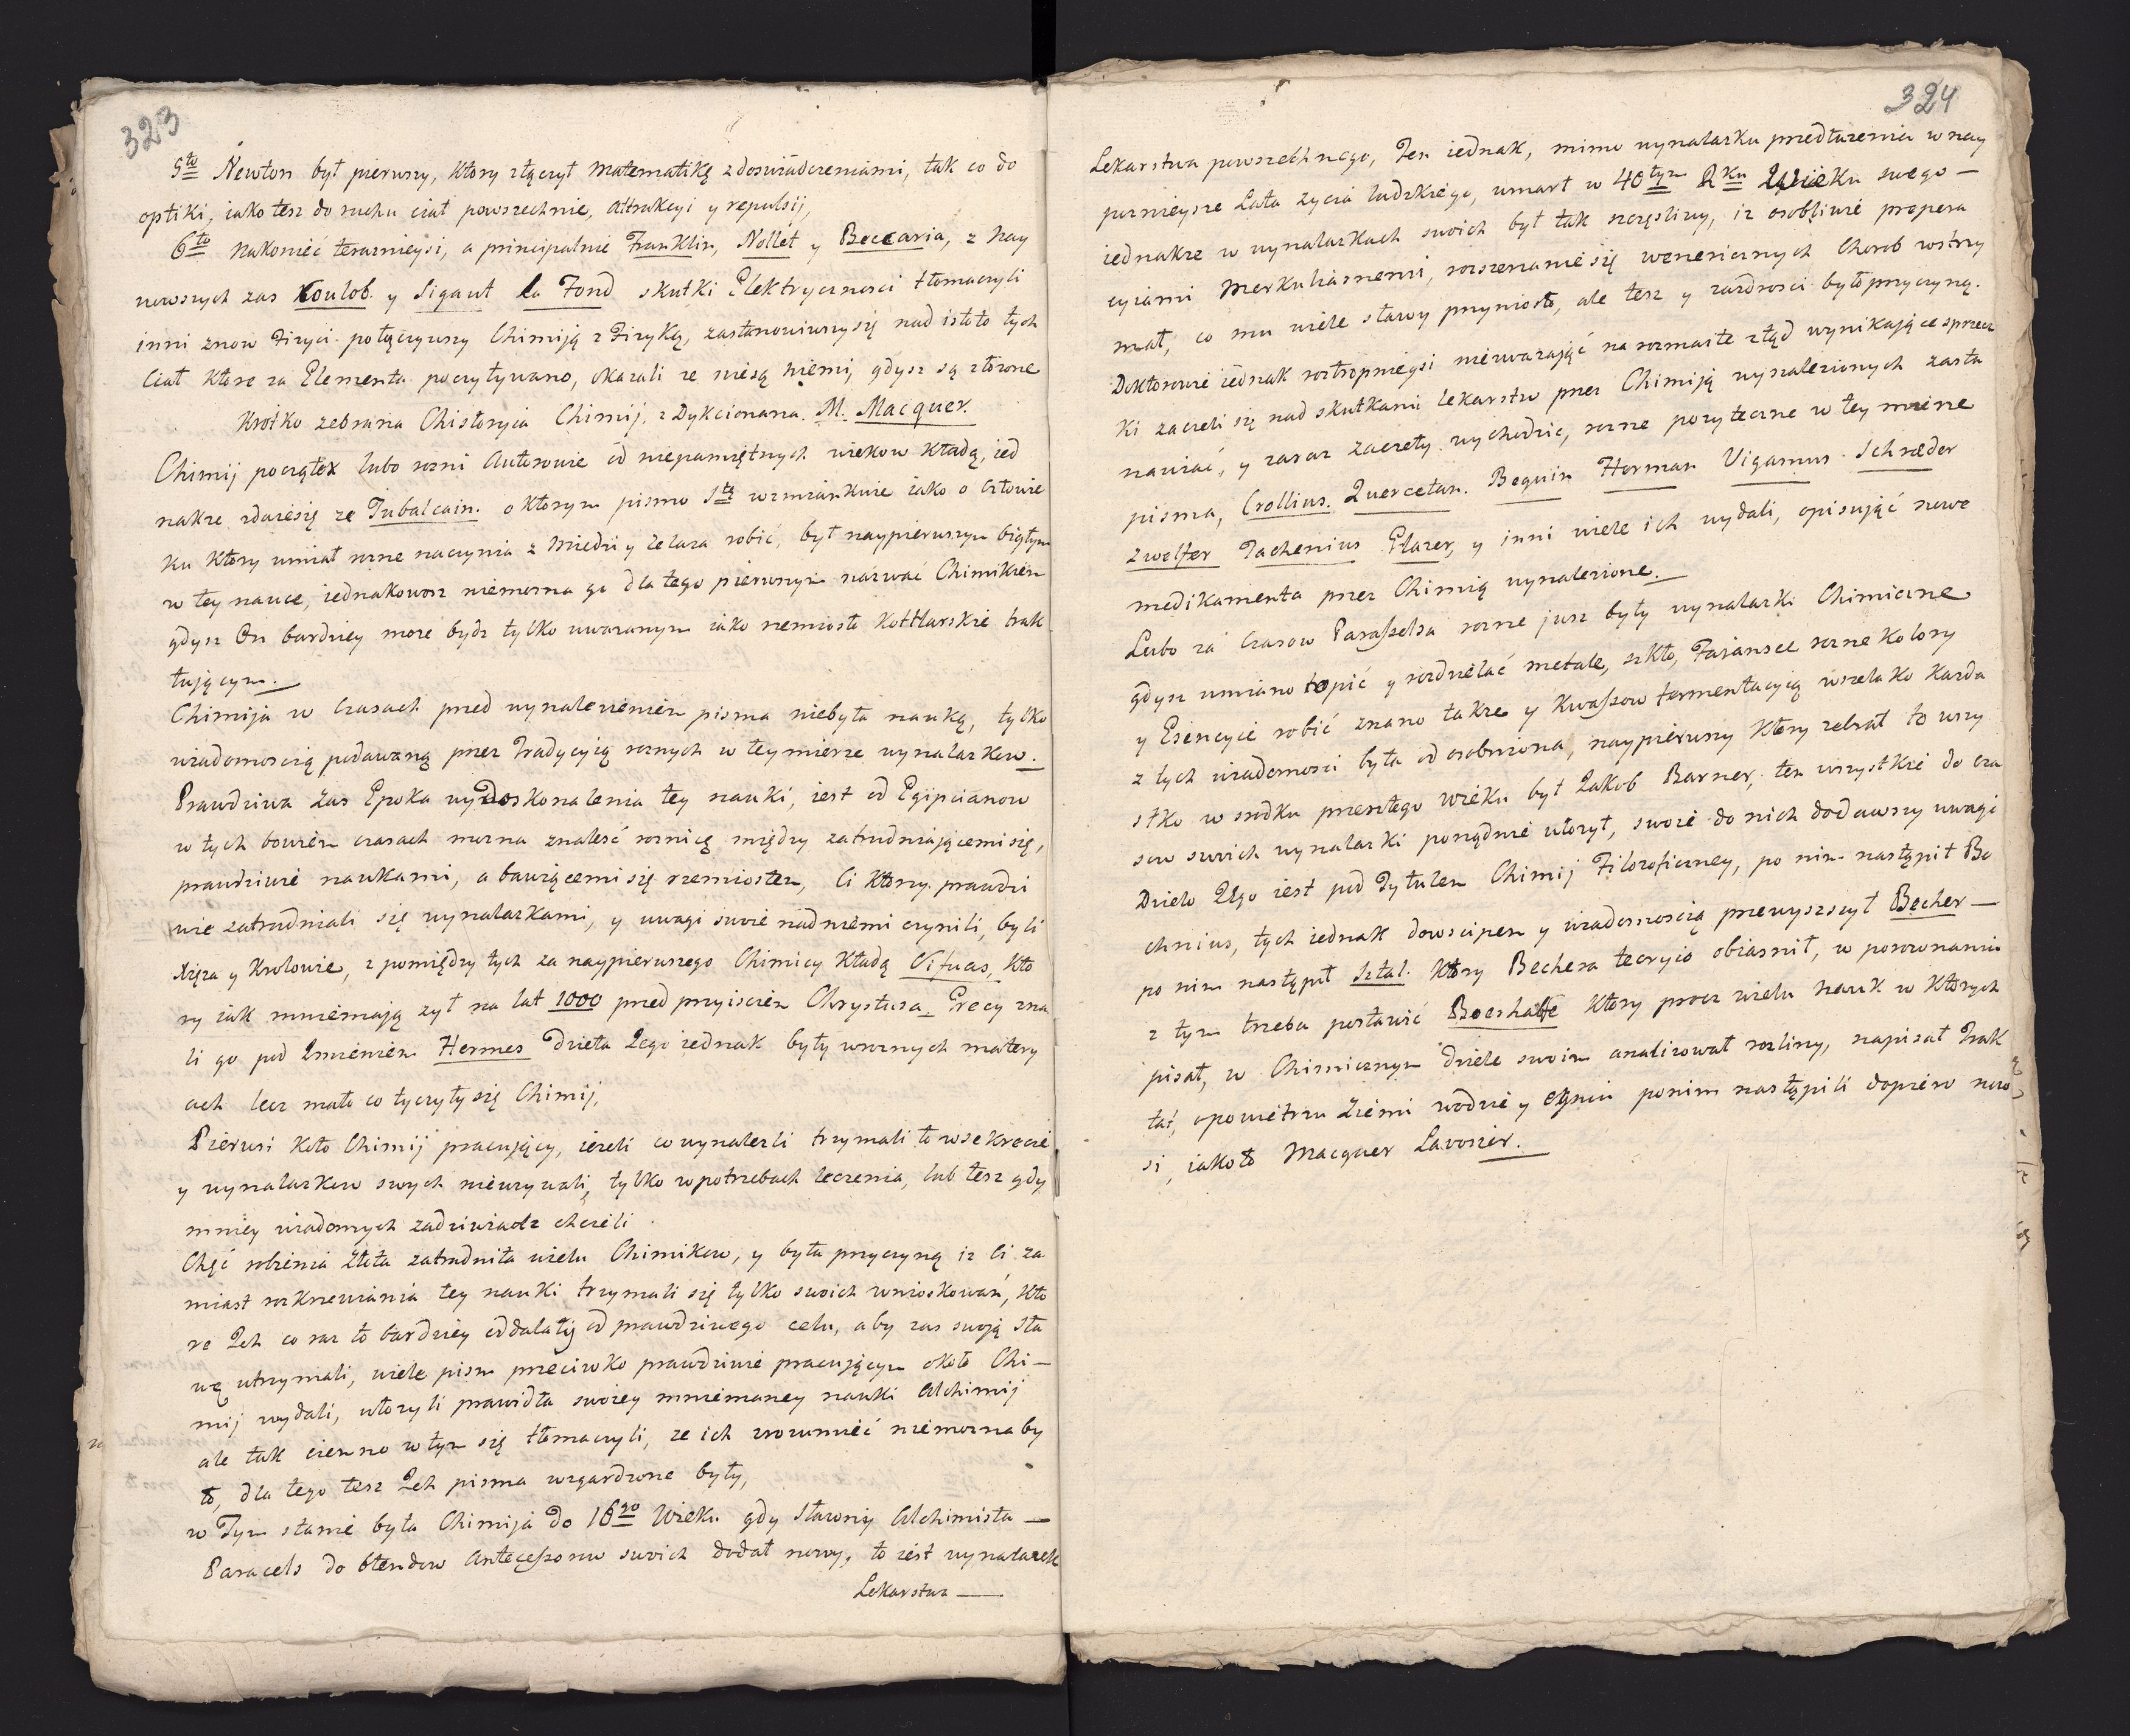 323
5to Newton był pierwszy, ktory złączył Matematikę zdoswiadczeniami, tak co do
optiki, iako tesz do ruchu ciał powszechnie, attrakcyi y repulsij,
6to Nakonieć terazniejsi, a principalnie Franklin, Nollet y Beccaria, z Nay
nowszych zas Koulob. y Sigaut la Fond skutki Elektrycznosci tłomaczyli
inni znow Fizyci połączywszy Chimiją z Fizyką, zastanowiwszysię nad istoto tych
Ciał ktore za Elementa poczytywano, okazali ze niesą niemi, gdysz są złozone
Krótko zebrana Chistoryia Chimij, z Dykcionarza. M. Macquer.
Chimij początek lubo rozni Autorowie od niepamiętnych wiekow kładą, ied
nakze zdaiesię ze Tubalcain. o ktorym pismo Ste wzmiankuie iako o człowie
ku ktory umiał rozne naczynia z Miedzi y Zelaza robić, był naypierwszym biegłym
w tey nauce, iednakowosz niemozna go dla tego pierwszym názwać Chimikiem
gdysz On bardziey moze bydz tylko uwazanym iako rzemiosło kottlarskie trak
tującym.
Chimija w Czasach przed wynalezieniem pisma niebyła nauką, tylko
wiadomoscią podawaną przez Tradycyią roznych w teymierze wynalazkow.
Prawdziwa zas Epoka wydoskonalenia tey nauki, iest od Egipcianow
w tych bowiem czasach mozna znalesć roznicę między zatrudniającemisię,
prawdziwie naukami, a bawiącemi się rzemiosłem, Ci ktorzy prawdzi
wie zatrudniali się wynalazkami, y uwagi swoie nadniemi czynili, byli
Xięza y Krolowie, z pomiędzy tych za naypierwszego Chimicy kładą Sifuas, kto
ry iak mniemają zył na lat 1000 przed przyisciem Chrystusa. Grecy zna
li go pod Imieniem Hermes Dzieła Jego iednak były wroznych matery
ach lecz mało co tyczyły się Chimij,
Pierwsi koło Chimij pracujący, iezeli co wynalezli trzymali to wsekrecie
y wynalazkow swych nieuzywali, tylko wpotrzebach leczenia, lub tesz gdy
mniey wiadomych zadziwiadz chcieli.
Chęć robienia złota zatrudniła wielu Chimikow, y była przyczyną iz Ci za
miast rozkrzewiania tey nauki trzymali się tylko swoich wnioskowań, kto
re Ich co raz to bardziey oddalały od prawdziwego celu, aby zas swoją sła
wę utrzymali, wiele pism przeciwko prawdziwie pracującym około Chi-
mij wydali, ułozyli prawidła swoiey mniemaney nauki Alchimij
ale tak ciemno wtym się tłómaczyli, ze ich zrozumieć niemozna by
ło, dla tego tesz Ich pisma wzgardzone były,
w Tym stanie była Chimija do 16go Wieku gdy sławny Alchimista —
Paracels do błendow Anteceszorow swoich dodał nowy, to iest wynalazek
Lekarstwa —
324
Lekarstwa powszechnego, Ten iednak, mimo wynalazku przedłuzenia wnay
puznieysze Lata zycia ludzkiego, umarł w 40tym Rku Wieku swego —
iednakze w wynalazkach swoich był tak szczęsliwy, iz osobliwie prepera
cyiami Merkuliasnemi, rozszerzanie się wenericznych Chorob wstrzy
mał, co mu wiele sławy przyniosło, ale tesz y zazdrosci było przyczyną.
Doktorowie iednak roztropnieysi nieuwazająć na rozmaite ztąd wynikające sprzecz
ki zaczeli się nad skutkami lekarstw przez Chimiją wynalezionych zasta
nawiać, y zaraz zaczeły wychodzić, rozne pozyteczne w tey mierze
pisma, Crollius. Quercetan. Beguin Herman Viganius. Schræder
Zwelfer Tachenius Glazer, y inni wiele ich wydali, opisująć nowe
medikamenta przez Chimią wynalezione.
Lubo zá Czasow Paraszelsa rozne jusz były wynalazki Chimiczne
gdysz umiano topić y rozdzielać metale, szkło, Fajansce rozne kolory
y Esencyie robić znano takze y kwaszow fermentacyią wszelako kazda
z tych wiadomosci była od osobniona, naypierwszy ktory zebrał to wszy
stko w srodku przeszłego wieku był Jakob Barner, ten wszystkie do cza
sow swoich wynalazki porządnie ułozył, swoie do nich dodawszy uwagi
Dzieło Jego iest pod Tytułem Chimij Filozoficzney, po nim nastąpił Bo
chnius, tych iednak dowscipem y wiadomoscią przewyszszył Becher —
po nim nastąpił Sztal. ktory Bechera teoryio obiasnił, w porownaniu
z tym trzeba postawić Boerhawe ktory procz wielu nauk w ktorych
pisał, w Chimicznym dziele swoim analizował rozliny, napisał Trak
tat, opowietrzu Ziemi wodzie y ogniu ponim nastąpili dopiero nowo
si, iako to Macquer Lavozier.